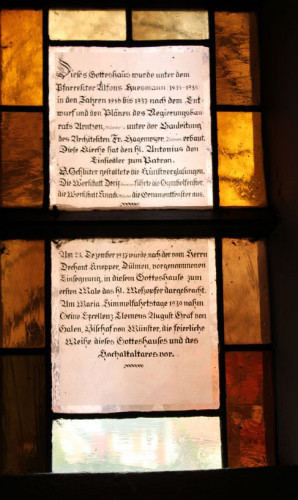 Dieses Gotteshaus wurde unter dem
Pfarrektor Alfons Huesmann
in den Jahren 1936 bis 1937 nach dem Ent-
wurf und den Plänen des Regierungsbau
rats Arntzen, unter der Bauleitung
des Architekten Fr. erbaut.
Diese Kirche hat den hl. Antonius den
Einsiedler zum Patron.
gestaltete die Kunstverglasungen.
Die Werkstatt führte die Symbolfenster,
die Werkstatt die Ornamentfenster aus.
Am 23. Dezember 1937 wurde, nach der vom Herrn
Dechant Knepper, Dülmen, vorgenommenen
Einsegnung, in diesem Gotteshause zum
ersten Male das hl. Meßopfer dargebracht.
Am Maria Himmelfahrtstage 1939 nahm
Seine Exzellenz Clemens August Graf von
Galen, Bischof von Münster, die feierliche
Weihe dieses Gotteshauses und des
Hochaltares vor.